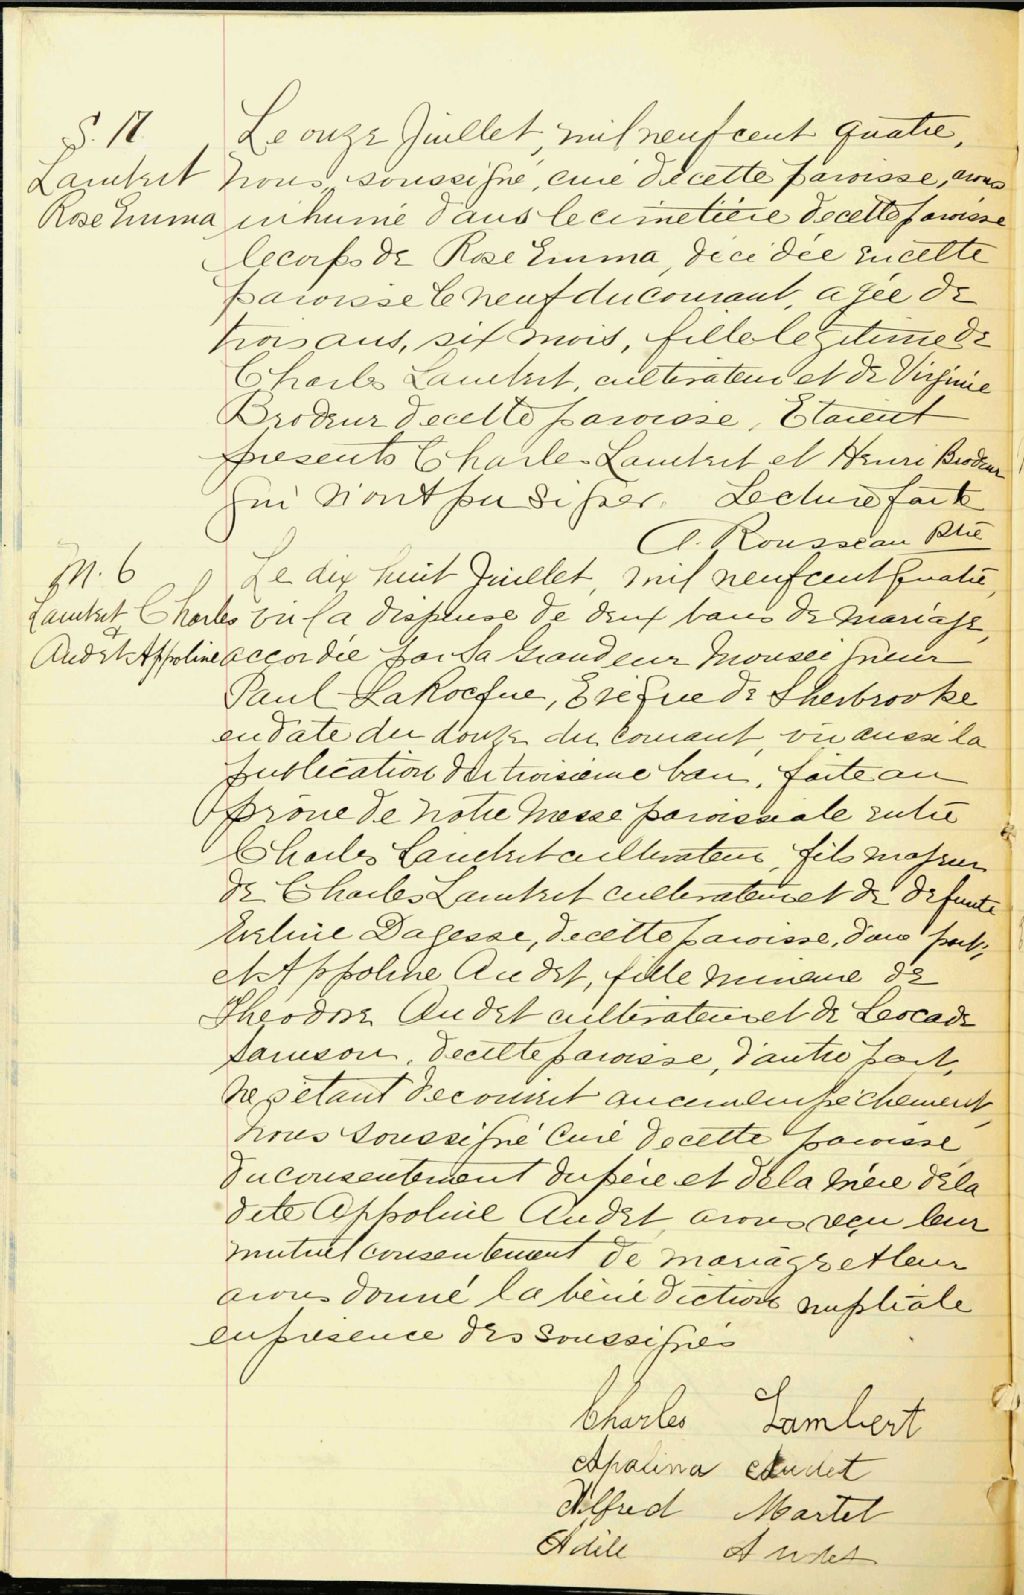 S. 17
Lambert
Rose Emma
Le onze Juillet, mil neuf cent quatre,
nous, soussigné, curé de cette paroisse, avons
inhumé dans le cimetière de cette paroisse
le corps de Rose Emma, décidée en cette
paroisse le neuf du courant, agée de
trois ans, six mois, fille legitime de
Charles Lambert, cultivateur et de Virginie
Brodeur de cette paroisse. Etaient
presents Charles Lambert et Henri Brodeur
qui n'ont pu signer. Lecture faite
A. Rousseau Ptre
M. 6
Lambert Charles
&
Audet Appoline
Le dix huit Juillet, mil neuf cent quatre,
vu la dispense de deux bans de mariage,
accordée par Sa Grandeur Monseigneur
Paul LaRocque, Evêque de Sherbrooke
en date du douze du courant, vu aussi la
publication du troisième ban, faite au
prône de notre Messe paroissiale entre
Charles Lambert cultivateur, fils majeur
de Charles Lambert cultivateur et de defunte
Eveline Dagesse, de cette paroisse, d'une part;
et Appoline Audet, fille mineure de
Theodore Audet cultivateur et de Leocade
Samson, de cette paroisse, d'autre part,
ne s'étant decouvert aucun empêchement,
nous soussigné curé de cette paroisse
du consentement du père et de la mère de la
dite Appoline Audet, avons reçu leur
mutuel consentement de mariage et leur
avons donné la bénédiction nuptiale
en présence des soussignés
Charles Lambert
Apalina Audet
Alfred Martel
Adile Audet